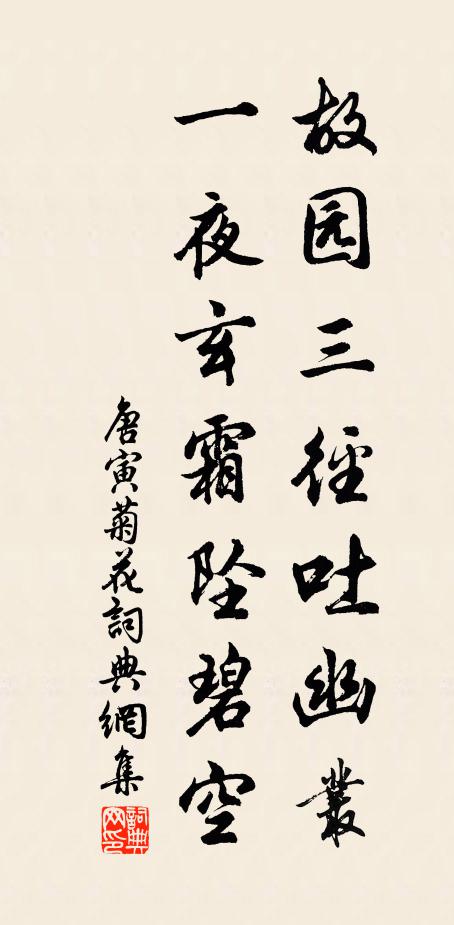 故园三径吐幽叢
一夜玄霜坠碧空
唐寅菊花詞典網集
詞典网印